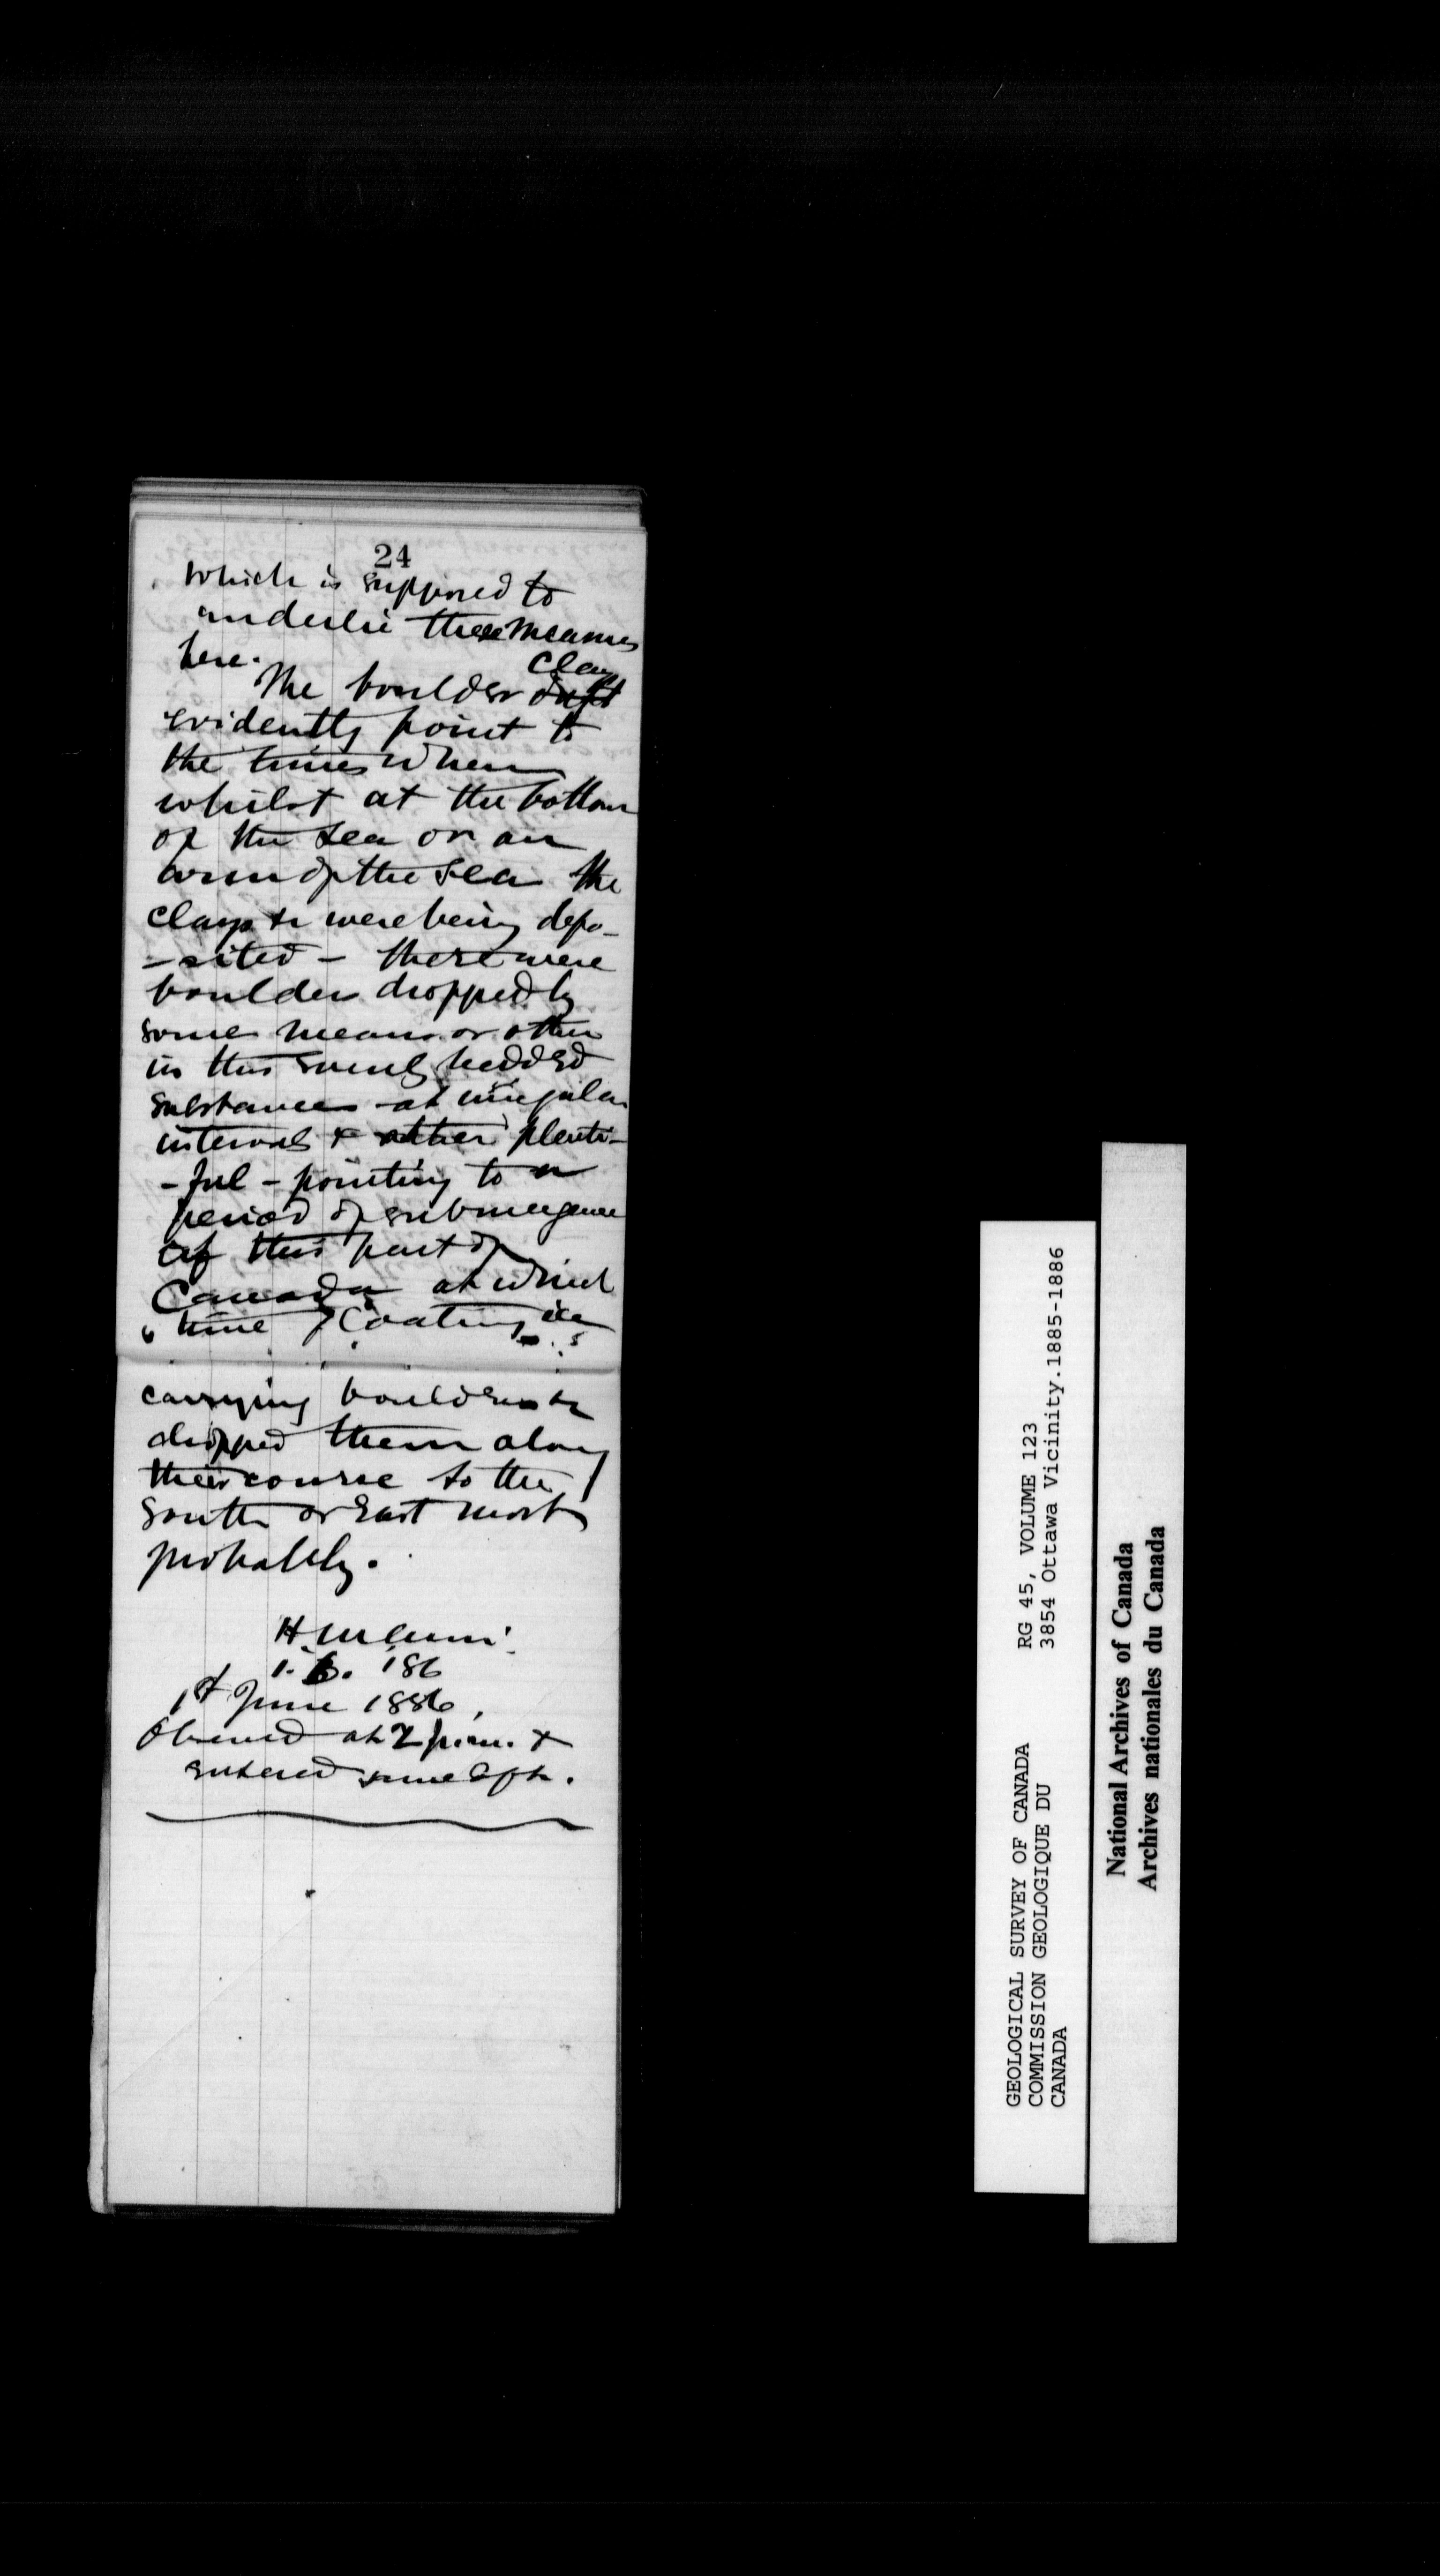 24
which is supposed to
underlie these measures
here.
clay
The boulder drift
evidently point to
the times when
whilst at the bottom
of the sea or an
arm of the sea the
clays &c were being depo-
-sited - there were
boulders dropped by
some means or other
in this evenly bedded
substance - at irregular
intervals & rather plenti-
-ful - pointing to a
period of submergence
of this part of
Canada at which
time floating ice
carrying boulders &c
dropped them along
their course to the
South or East most
probably.
H. M. Ami.
1. 6. 186
1st June 1886,
Observed at 2 p.m. &
entered same aft.
GEOLOGICAL SURVEY OF CANADA
COMMISSION GEOLOGIQUE DU
CANADA
RG 45, VOLUME 123
3854 Ottawa Vicinity.1885-1886
National Archives of Canada
Archives nationales du Canada